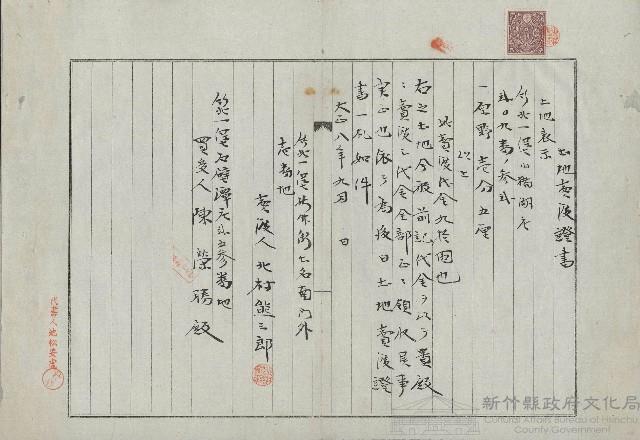 土地賣渡證書
土地表示
竹北一堡山豬湖庄
貳〇九番ノ參貳
一原野 壱分五厘
以上
此賣渡代金九拾圓也
右之土地今般前記代金ヲ以テ貴殿
ニ賣渡シ代金全部正ニ領收候事
實正也依テ為後日土地賣渡證
書一札如件
大正八年九月 日
竹北一堡 土名南門外
番地
賣渡人 北村熊三郎
竹北一堡石壁潭庄 五參番地
買受人 陳 勝殿
代書人
新竹縣政府文化局
Cultural Affairs Bureau of Hsinchu
County Government